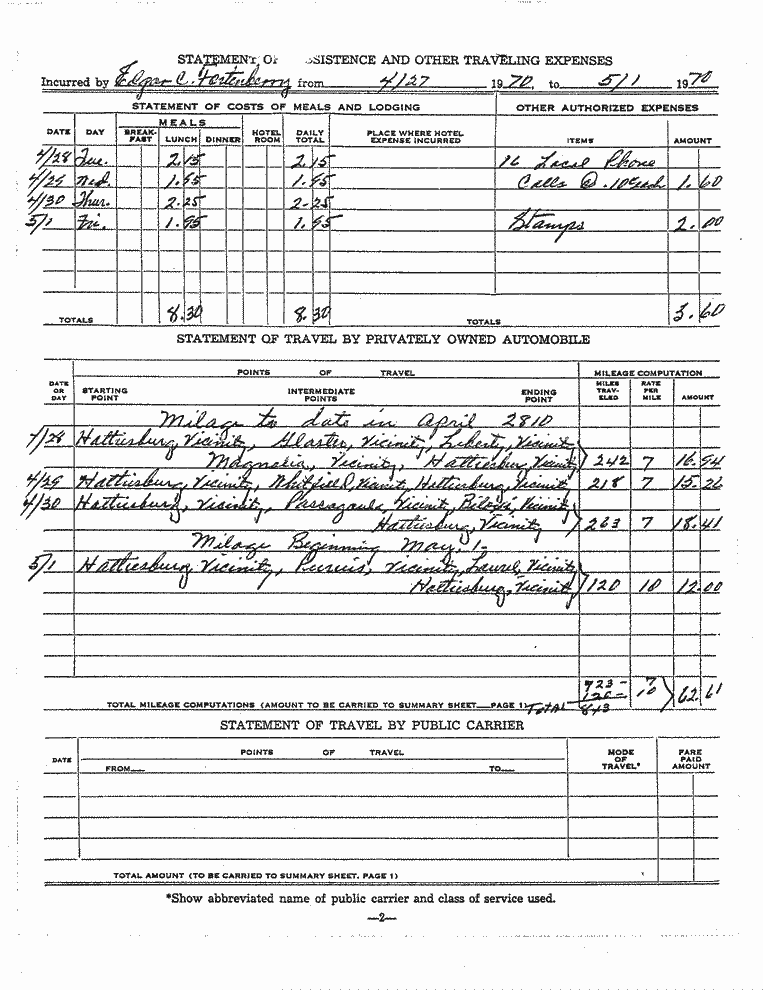 STATEMENT OF SISTENCE AND OTHER TRAVELING EXPENSES
Incurred by Edgar C. Fortenberry from 4/27 1970, to 5/1 1970
STATEMENT OF COSTS OF MEALS AND LODGING OTHER AUTHORIZED EXPENSES
DATE DAY MEALS BREAK-FAST LUNCH DINNER HOTEL ROOM DAILY TOTAL PLACE WHERE HOTEL EXPENSE INCURRED ITEMS AMOUNT
4/28 Tue. 2.15 2.15 16 Local Phone
4/29 Wed. 1.95 1.95 Calls @ .10 each 1.60
4/30 Thur. 2.25 2.25
5/1 Fri. 1.95 1.95 Stamps 2.00
TOTALS 8.30 8.30 TOTALS 3.60
STATEMENT OF TRAVEL BY PRIVATELY OWNED AUTOMOBILE
POINTS OF TRAVEL MILEAGE COMPUTATION
DATE OR DAY STARTING POINT INTERMEDIATE POINTS ENDING POINT MILES TRAV-ELED RATE PER MILE AMOUNT
Milage to date in April 2810
4/28 Hattiesburg, Vicinity, Gloster, Vicinity, Liberty, Vicinity
Magnolia, Vicinity, Hattiesburg, Vicinity 242 7 16.94
4/29 Hattiesburg, Vicinity, Whitfield, Vicinity, Hattiesburg, Vicinity 218 7 15.26
4/30 Hattiesburg, Vicinity, Pascagoula, Vicinity, Biloxi, Vicinity
Hattiesburg, Vicinity 263 7 18.41
Milage Beginning May, 1,
5/1 Hattiesburg, Vicinity, Purvis, Vicinity, Laurel, Vicinity
Hattiesburg, Vicinity 120 10 12.00
723- 7
120- 10 62.61
TOTAL MILEAGE COMPUTATIONS (AMOUNT TO BE CARRIED TO SUMMARY SHEET—PAGE 1) Total 843
STATEMENT OF TRAVEL BY PUBLIC CARRIER
DATE POINTS OF TRAVEL MODE OF TRAVEL* FARE PAID AMOUNT
FROM TO
TOTAL AMOUNT (TO BE CARRIED TO SUMMARY SHEET, PAGE 1)
*Show abbreviated name of public carrier and class of service used.
—2—